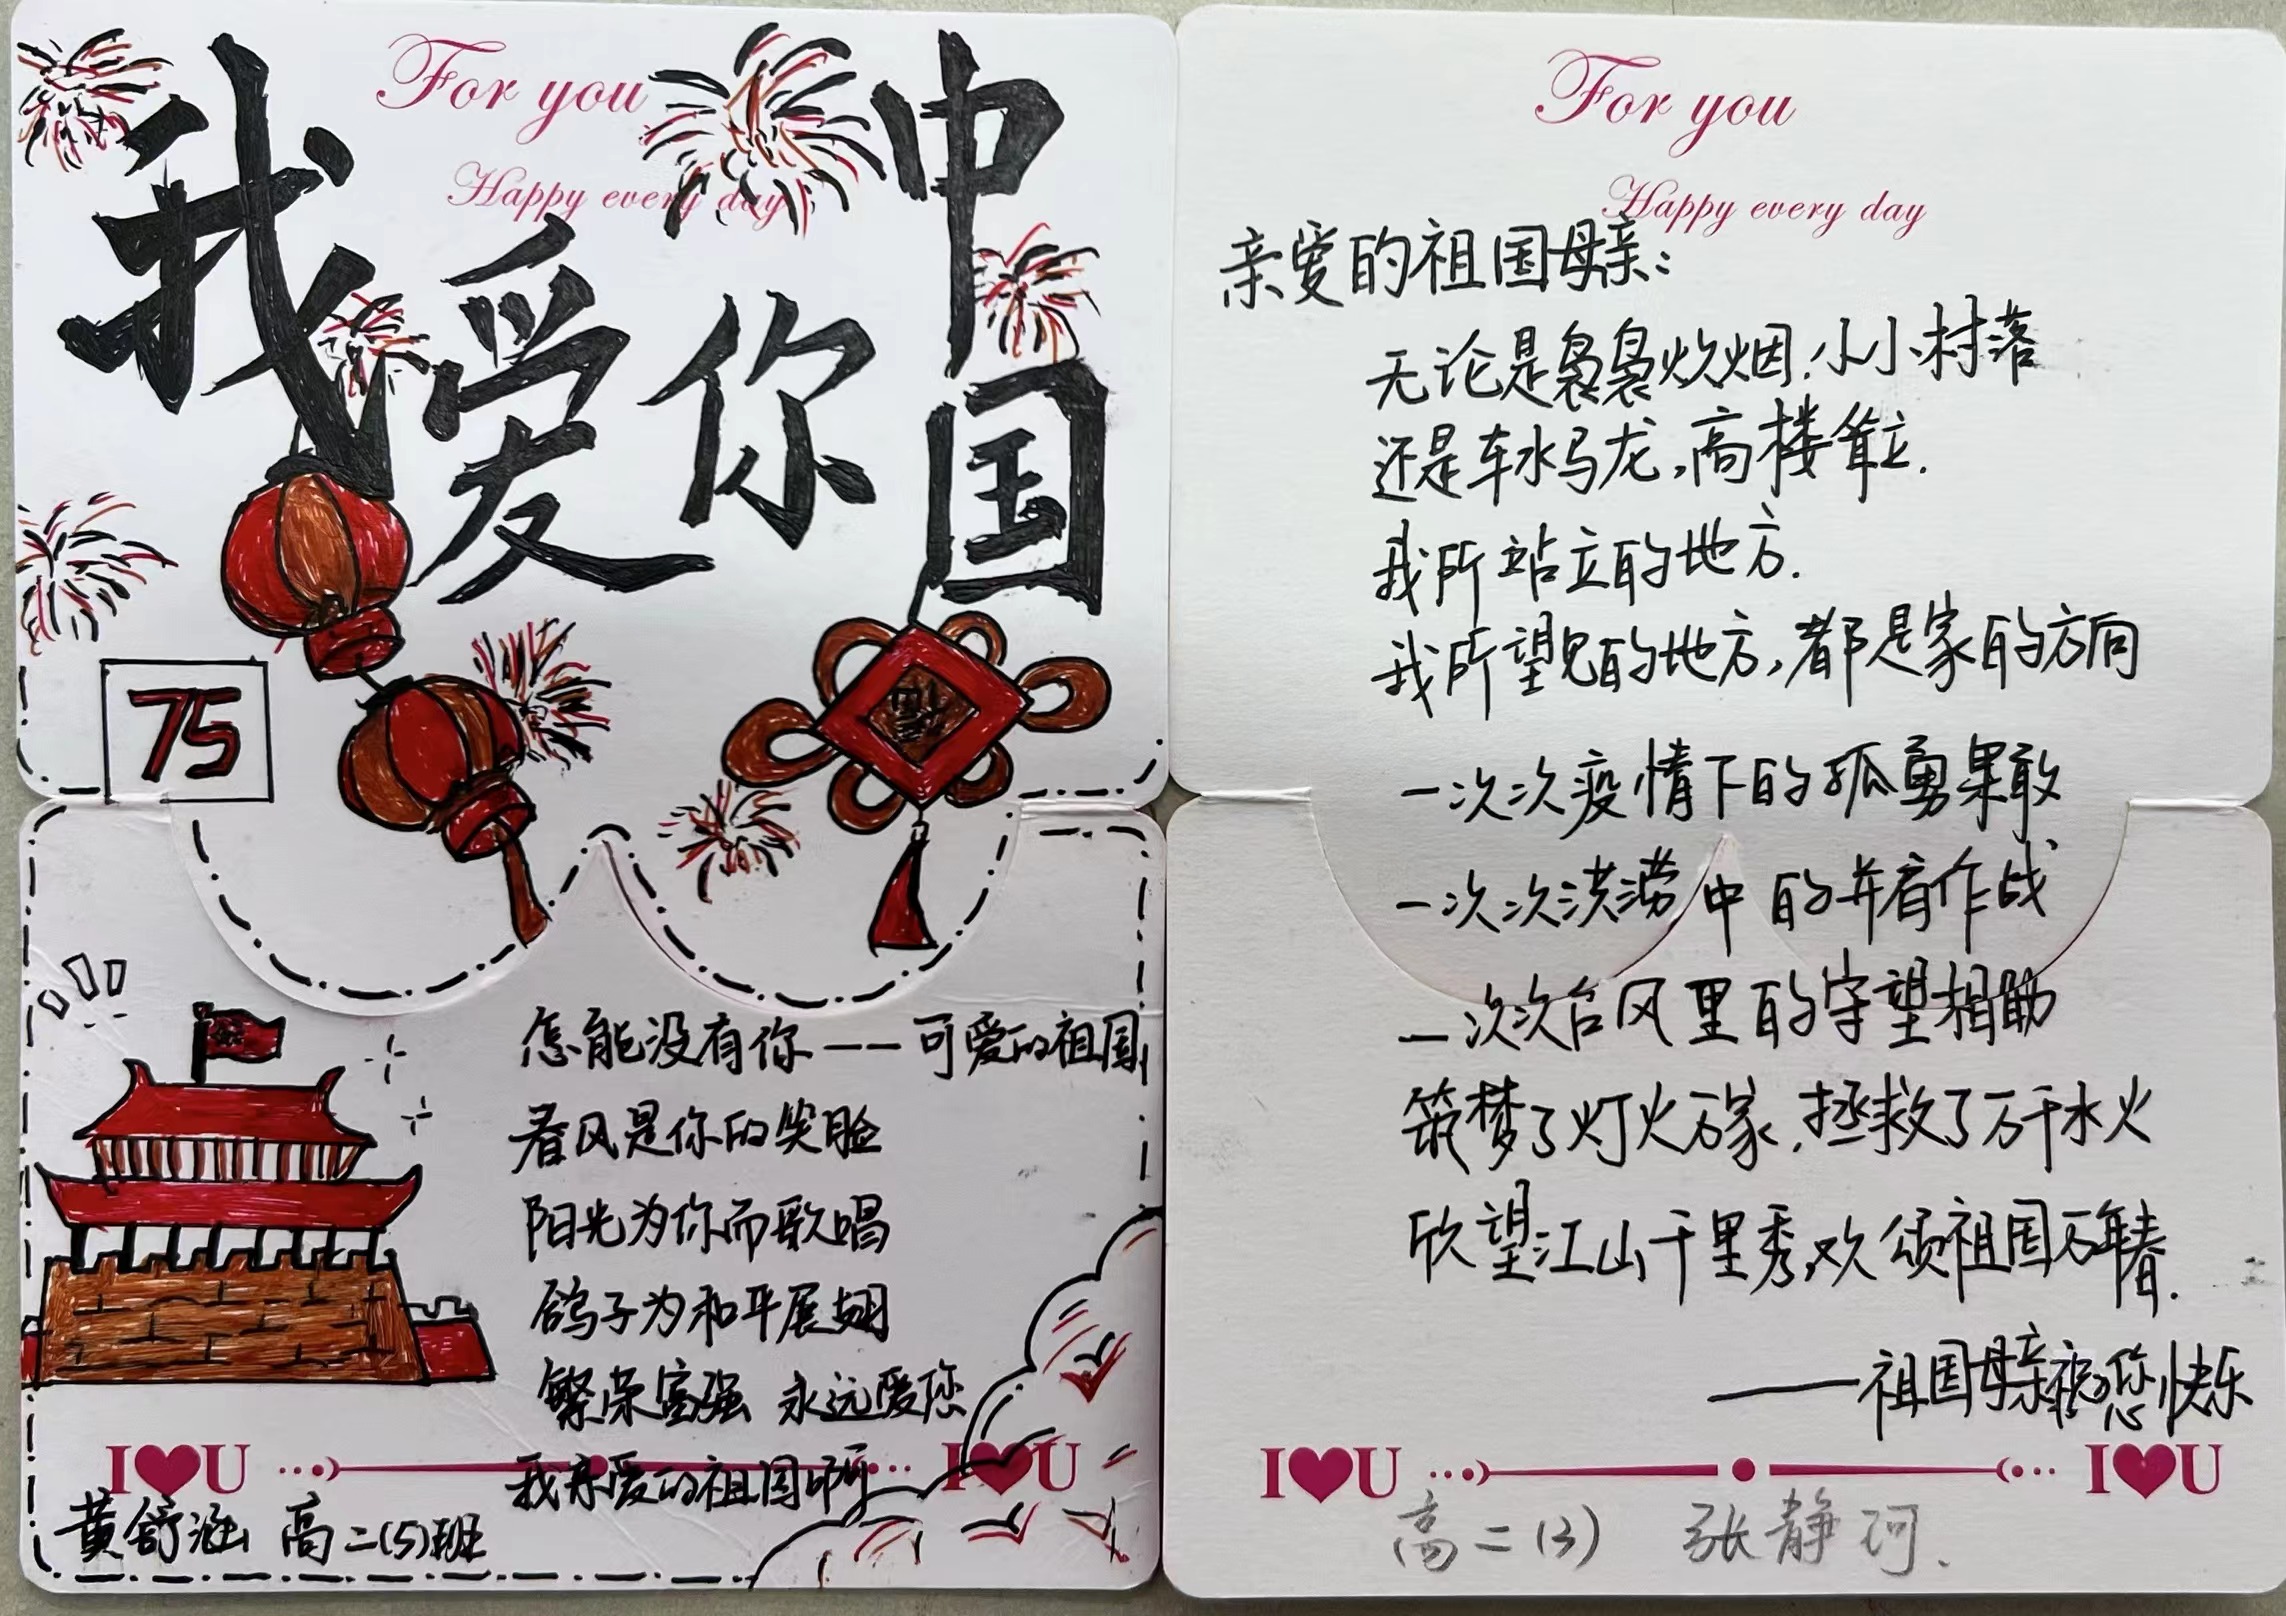 For you
Happy every day
我爱你中国
75
怎能没有你——可爱的祖国
春风是你的笑脸
阳光为你而歌唱
鸽子为和平展翅
繁荣富强 永远爱您
我亲爱的祖国啊
I♥U I♥U
黄舒涵 高二(5)班
For you
Happy every day
亲爱的祖国母亲：
无论是袅袅炊烟，小小村落
还是车水马龙，高楼耸立.
我所站立的地方.
我所望见的地方，都是家的方向
一次次疫情下的孤勇果敢
一次次洪涝中的并肩作战
一次次台风里的守望相助
筑梦了灯火万家，拯救了万千水火
欣望江山千里秀，欢颂祖国万年春.
——祖国母亲祝您快乐
I♥U I♥U
高二(3) 张静珂.